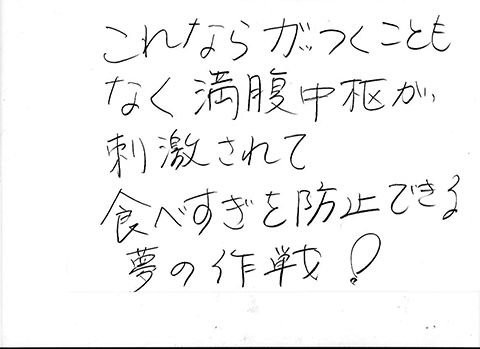 これならがっつくことも
なく満腹中枢が
刺激されて
食べすぎを防止できる
夢の作戦!